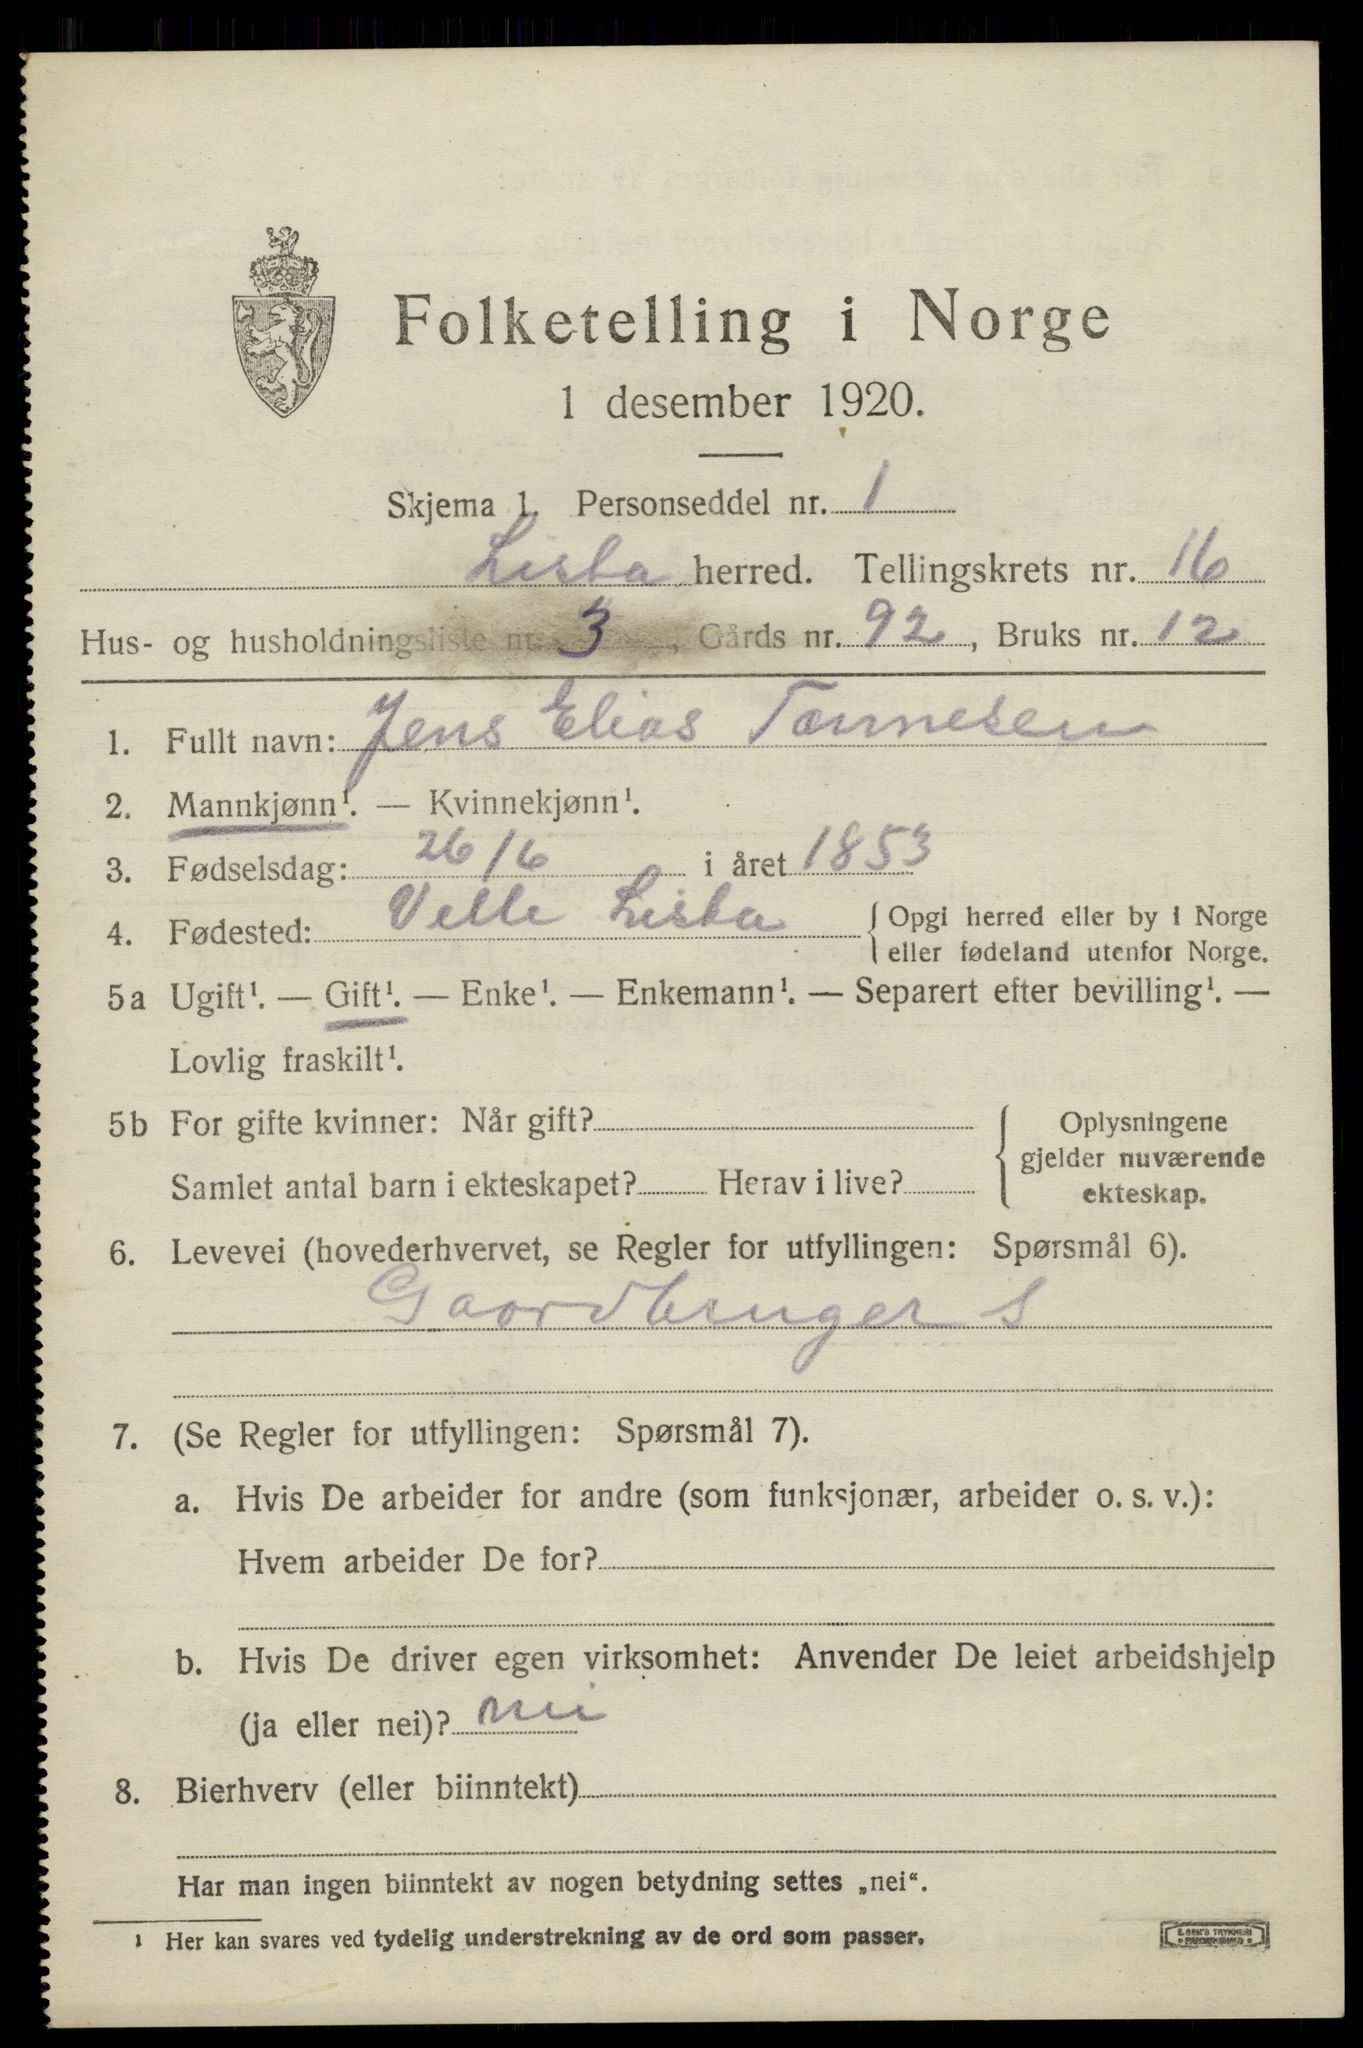 Folketelling i Norge
1 desember 1920.
Skjema 1. Personseddel nr. 1
Lista herred. Tellingskrets nr. 16
Hus- og husholdningsliste nr. 3, Gårds nr. 92, Bruks nr. 12
1. Fullt navn: Jens Elias Tønnesen
2. Mannkjønn¹. — Kvinnekjønn¹.
3. Fødselsdag: 26/6 i året 1853
4. Fødested: Velle Lista { Opgi herred eller by i Norge
eller fødeland utenfor Norge.
5a Ugift¹. — Gift¹. — Enke¹. — Enkemann¹. — Separert efter bevilling¹. —
Lovlig fraskilt¹.
5b For gifte kvinner: Når gift? { Oplysningene
gjelder nuværende
Samlet antal barn i ekteskapet? Herav i live? ekteskap.
6. Levevei (hovederhvervet, se Regler for utfyllingen: Spørsmål 6).
Gaardbruger S
7. (Se Regler for utfyllingen: Spørsmål 7).
a. Hvis De arbeider for andre (som funksjonær, arbeider o. s. v.):
Hvem arbeider De for?
b. Hvis De driver egen virksomhet: Anvender De leiet arbeidshjelp
(ja eller nei)? nei
8. Bierhverv (eller biinntekt)
Har man ingen biinntekt av nogen betydning settes „nei“.
¹ Her kan svares ved tydelig understrekning av de ord som passer.